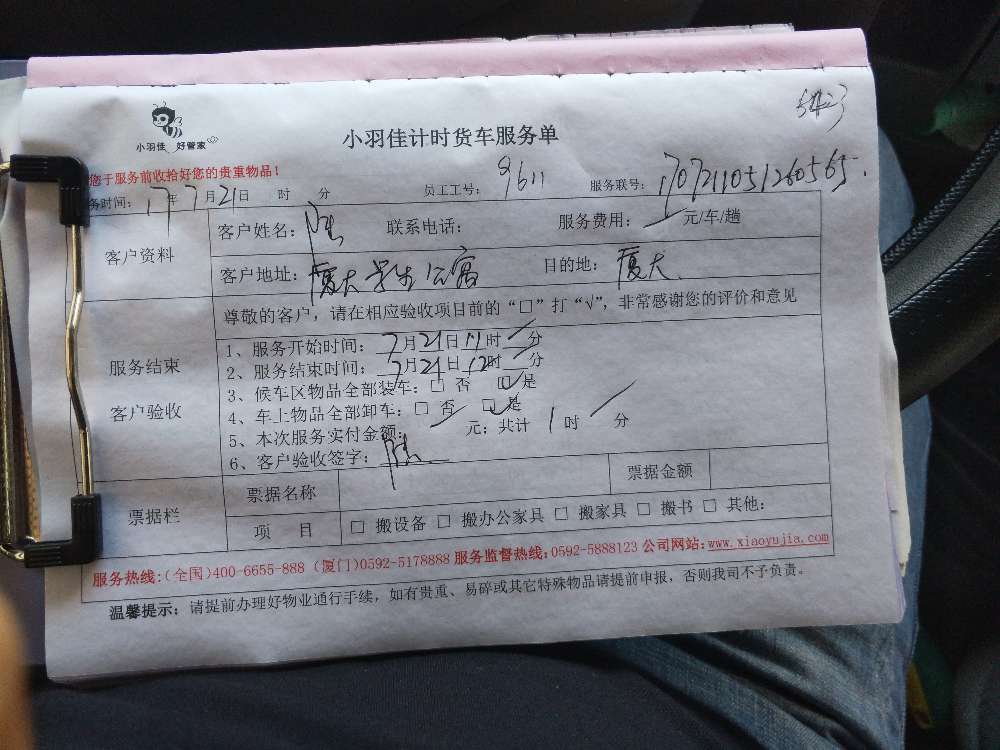 小羽佳 好管家
小羽佳计时货车服务单
您于服务前收拾好您的贵重物品！
务时间：17年7月21日 时 分 员工工号：9611 服务联号：1707211051260565
客户资料 客户姓名： 联系电话： 服务费用： 元/车/趟
客户地址：厦大学生公寓 目的地：厦大
尊敬的客户，请在相应验收项目前的“□”打“√”，非常感谢您的评价和意见
服务结束 客户验收
1、服务开始时间：7月21日11时 分
2、服务结束时间：7月21日12时 分
3、候车区物品全部装车：□ 否 ☑ 是
4、车上物品全部卸车：□ 否 ☑ 是
5、本次服务实付金额： 元；共计 1 时 分
6、客户验收签字：
票据栏 票据名称 票据金额
项 目 □ 搬设备 □ 搬办公家具 □ 搬家具 □ 搬书 □ 其他：
服务热线：(全国)400-6655-888 (厦门)0592-5178888 服务监督热线：0592-5888123 公司网站：www.xiaoyujia.com
温馨提示：请提前办理好物业通行手续，如有贵重、易碎或其它特殊物品请提前申报，否则我司不予负责。